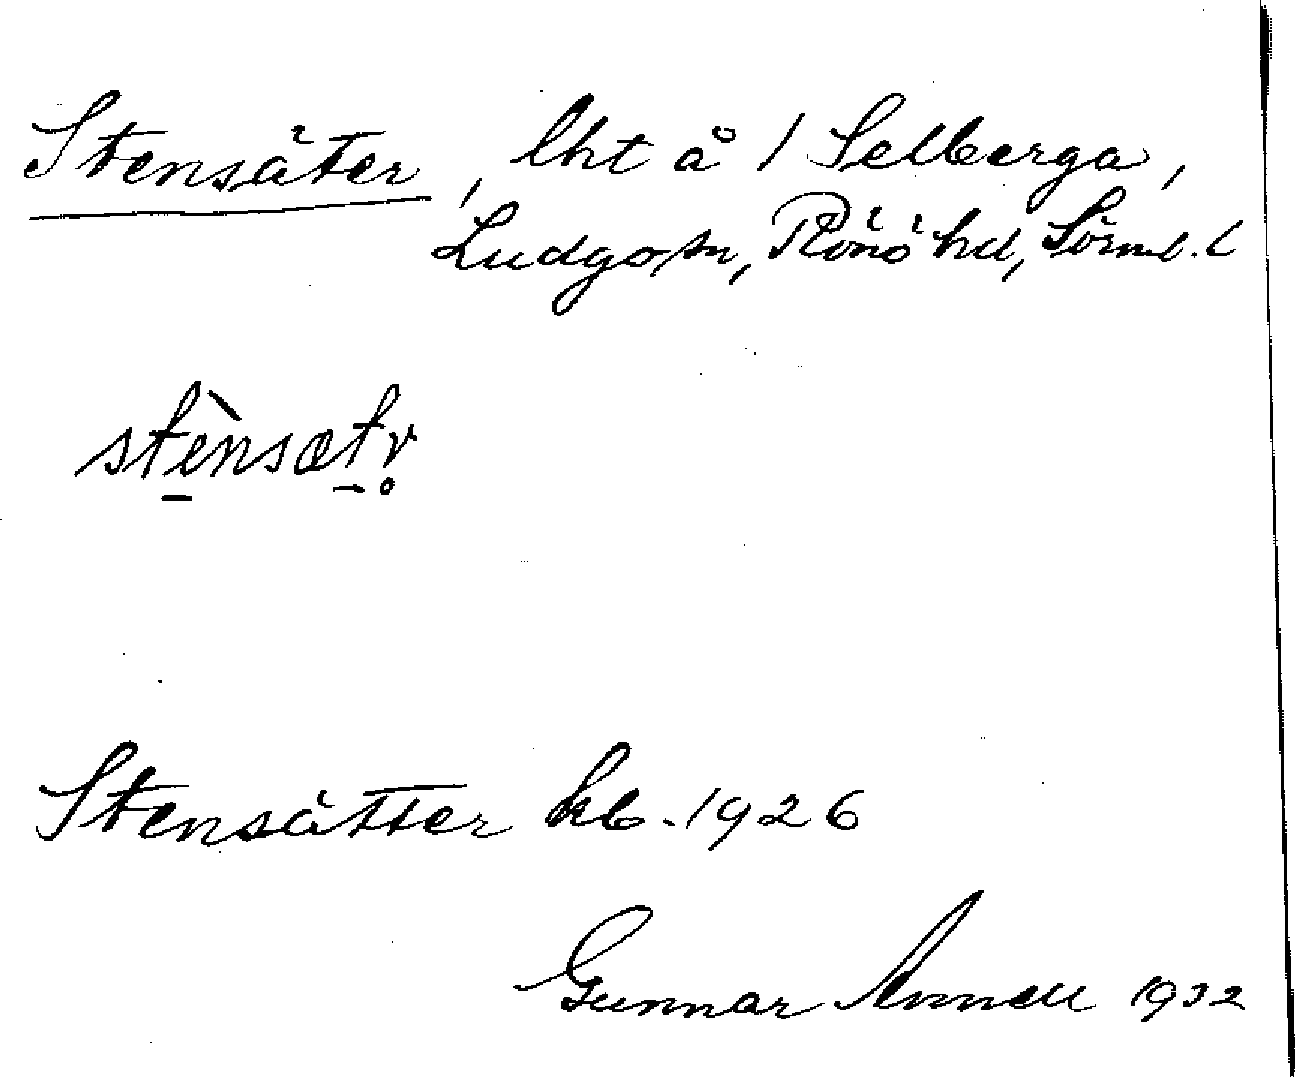 Stensäter, lht å / Selberga,
Ludgo sn, Rönö hd, Sörml. l
stènsætr̥
Stensätter kb. 1926
Gunnar Annell 1932